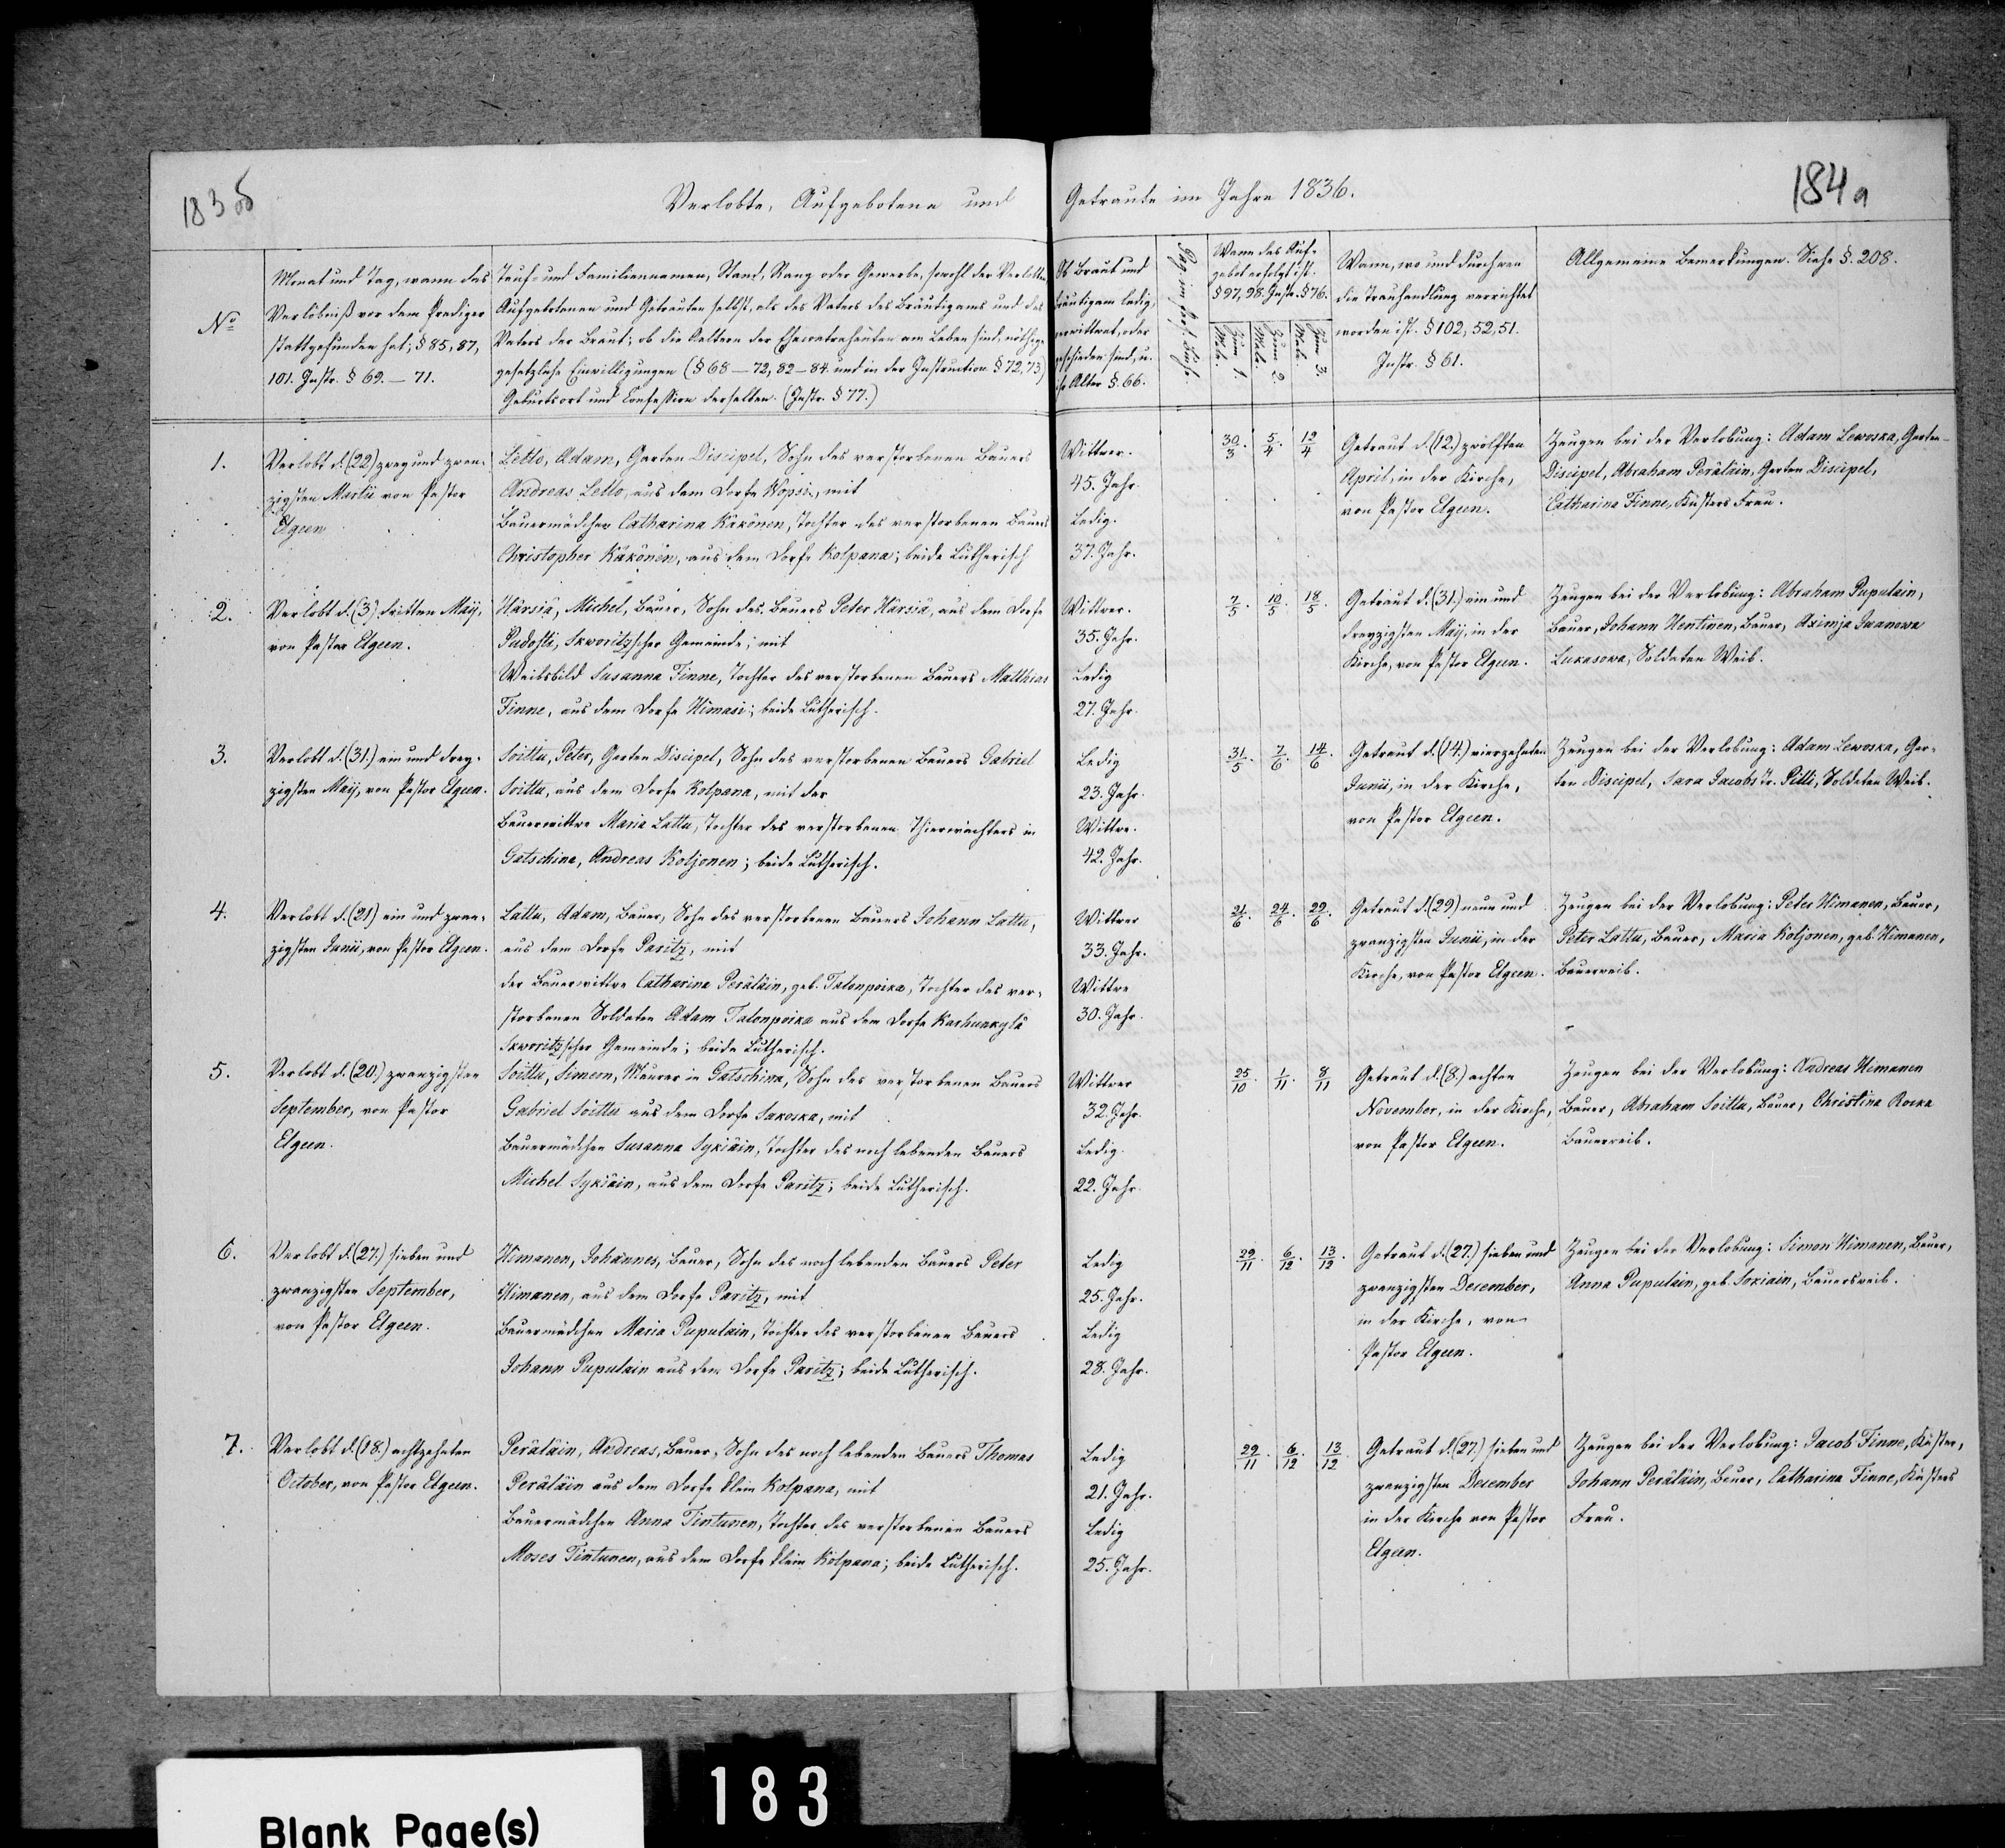 183 б
Verlobte, Aufgebotene und Getraute im Jahre 1836.
184 a
No
Monat und Tag, wann das
Verlöbniß vor dem Prediger
stattgefunden hat; § 85, 87,
101. Instr. § 69. — 71.
Tauf- und Familiennamen, Stand, Rang oder Gewerbe, sowohl der Verlobten
Aufgebotenen und Getrauten selbst, als des Vaters des Bräutigams und des
Vaters der Braut; ob die Aeltern der Ehecontrahenten am Leben sind, nöthige
gesetzliche Einwilligungen (§ 68 — 72, 82 — 84. und in der Instruction § 72, 73)
Geburtsort und Confession derselben. (Instr. § 77.)
Ob Braut und
Bräutigam ledig,
verwittwet, oder
geschieden sind, u.
ihr Alter § 66.
Pag. im Pers. Buche.
Wann das Auf-
gebot erfolgt ist.
§ 97, 98. Instr. § 76.
Zum 1. Male.
Zum 2. Male.
Zum 3. Male.
Wann, wo und durch wen
die Trauhandlung verrichtet
worden ist. § 102, 52, 51.
Instr. § 61.
Allgemeine Bemerkungen. Siehe § 208.
1.
Verlobt d. (22) zwey und zwan-
zigsten Martii von Pastor
Elgeen
Letto, Adam, Garten Discipel, Sohn des verstorbenen Bauers
Andreas Letto, aus dem Dorfe Wopsi, mit
Bauermädchen Catharina Käkönen, Tochter des verstorbenen Bauers
Christopher Käkönen, aus dem Dorfe Kolpana; beide Lutherisch
Wittwer.
45. Jahr.
Ledig.
37. Jahr.
30/3. 5/4. 12/4
Getraut d. (12.) zwölften
April, in der Kirche,
von Pastor Elgeen.
Zeugen bei der Verlobung: Adam Lewoska, Garten-
Discipel, Abraham Peräläin, Garten Discipel,
Catharina Finne, Küsters Frau.
2.
Verlobt d. (3) dritten Maij,
von Pastor Elgeen.
Härsiä, Michel, Bauer, Sohn des Bauers Peter Härsiä, aus dem Dorfe
Pudosti, Skworitzscher Gemeinde; mit
Weibsbild Susanna Finne, Tochter des verstorbenen Bauers Matthias
Finne, aus dem Dorfe Himasi; beide Lutherisch.
Wittwer.
35. Jahr.
Ledig
27. Jahr.
7/5. 10/5. 18/5.
Getraut d. (31.) ein und
dreyzigsten Maij, in der
Kirche, von Pastor Elgeen.
Zeugen bei der Verlobung: Abraham Puputain,
Bauer, Johann Hentinen, Bauer, Axinja Iwanowa
Lukasowa, Soldaten Weib.
3.
Verlobt d. (31.) ein und drey-
zigsten Maij, von Pastor Elgeen.
Soittu, Peter, Garten Discipel, Sohn des verstorbenen Bauers Gabriel
Soittu, aus dem Dorfe Kolpana, mit der
Bauerwittwe Maria Lattu, Tochter des verstorbenen Thierwächters in
Gatschina, Andreas Koljonen; beide Lutherisch.
Ledig
23. Jahr.
Wittwe.
42. Jahr.
31/5. 7/6. 14/6
Getraut d. (14.) vierzehnten
Junii, in der Kirche,
von Pastor Elgeen.
Zeugen bei der Verlobung: Adam Lewoska, Gar-
ten Discipel, Sara Jacobs Tr. Pilli, Soldaten Weib.
4.
Verlobt d. (21) ein und zwan-
zigsten Junii, von Pastor Elgeen.
Lattu, Adam, Bauer, Sohn des verstorbenen Bauers Johann Lattu,
aus dem Dorfe Paritz, mit
der Bauerwittwe Catharina Peräläin, geb. Talonpoika, Tochter des ver-
storbenen Soldaten Adam Talonpoika aus dem Dorfe Karhunkylä
Skworitzscher Gemeinde; beide Lutherisch.
Wittwer
33. Jahr.
Wittwe
30. Jahr.
21/6. 24/6. 29/6.
Getraut d. (29) neun und
zwanzigsten Junii, in der
Kirche, von Pastor Elgeen.
Zeugen bei der Verlobung: Peter Himanen, Bauer,
Peter Lattu, Bauer, Maria Koljonen, geb. Himanen,
Bauerweib.
5.
Verlobt d. (20.) zwanzigsten
September, von Pastor
Elgeen.
Soittu, Simeon, Maurer in Gatschina, Sohn des verstorbenen Bauers
Gabriel Soittu aus dem Dorfe Sakoska, mit
Bauermädchen Susanna Sykiäin, Tochter des noch lebenden Bauers
Michel Sykiäin, aus dem Dorfe Paritz; beide Lutherisch.
Wittwer
32. Jahr.
Ledig.
22. Jahr.
25/10. 1/11. 8/11
Getraut d. (8.) achten
November, in der Kirche,
von Pastor Elgeen.
Zeugen bei der Verlobung: Andreas Himanen
Bauer, Abraham Soittu, Bauer, Christina Rocka
Bauerweib.
6.
Verlobt d. (27.) sieben und
zwanzigsten September,
von Pastor Elgeen.
Himanen, Johannes, Bauer, Sohn des noch lebenden Bauers Peter
Himanen, aus dem Dorfe Paritz, mit
Bauermädchen Maria Puputain, Tochter des verstorbenen Bauers
Johann Puputain aus dem Dorfe Paritz; beide Lutherisch.
Ledig
25. Jahr.
Ledig
28. Jahr.
29/11. 6/12. 13/12.
Getraut d. (27.) sieben und
zwanzigsten December,
in der Kirche, von
Pastor Elgeen.
Zeugen bei der Verlobung: Simon Himanen, Bauer,
Anna Puputain, geb. Sokiain, Bauersweib.
7.
Verlobt d. (18.) achtzehnten
October, von Pastor Elgeen.
Peräläin, Andreas, Bauer, Sohn des noch lebenden Bauers Thomas
Peräläin aus dem Dorfe klein Kolpana, mit
Bauermädchen Anna Tintunen, Tochter des verstorbenen Bauers
Moses Tintunen, aus dem Dorfe klein Kolpana; beide Lutherisch.
Ledig
21. Jahr.
Ledig
25. Jahr.
29/11. 6/12. 13/12
Getraut d. (27.) sieben und
zwanzigsten December
in der Kirche von Pastor
Elgeen.
Zeugen bei der Verlobung: Jacob Finne, Küster,
Johann Peräläin, Bauer, Catharina Finne, Küsters
Frau.
183
Blank Page(s)